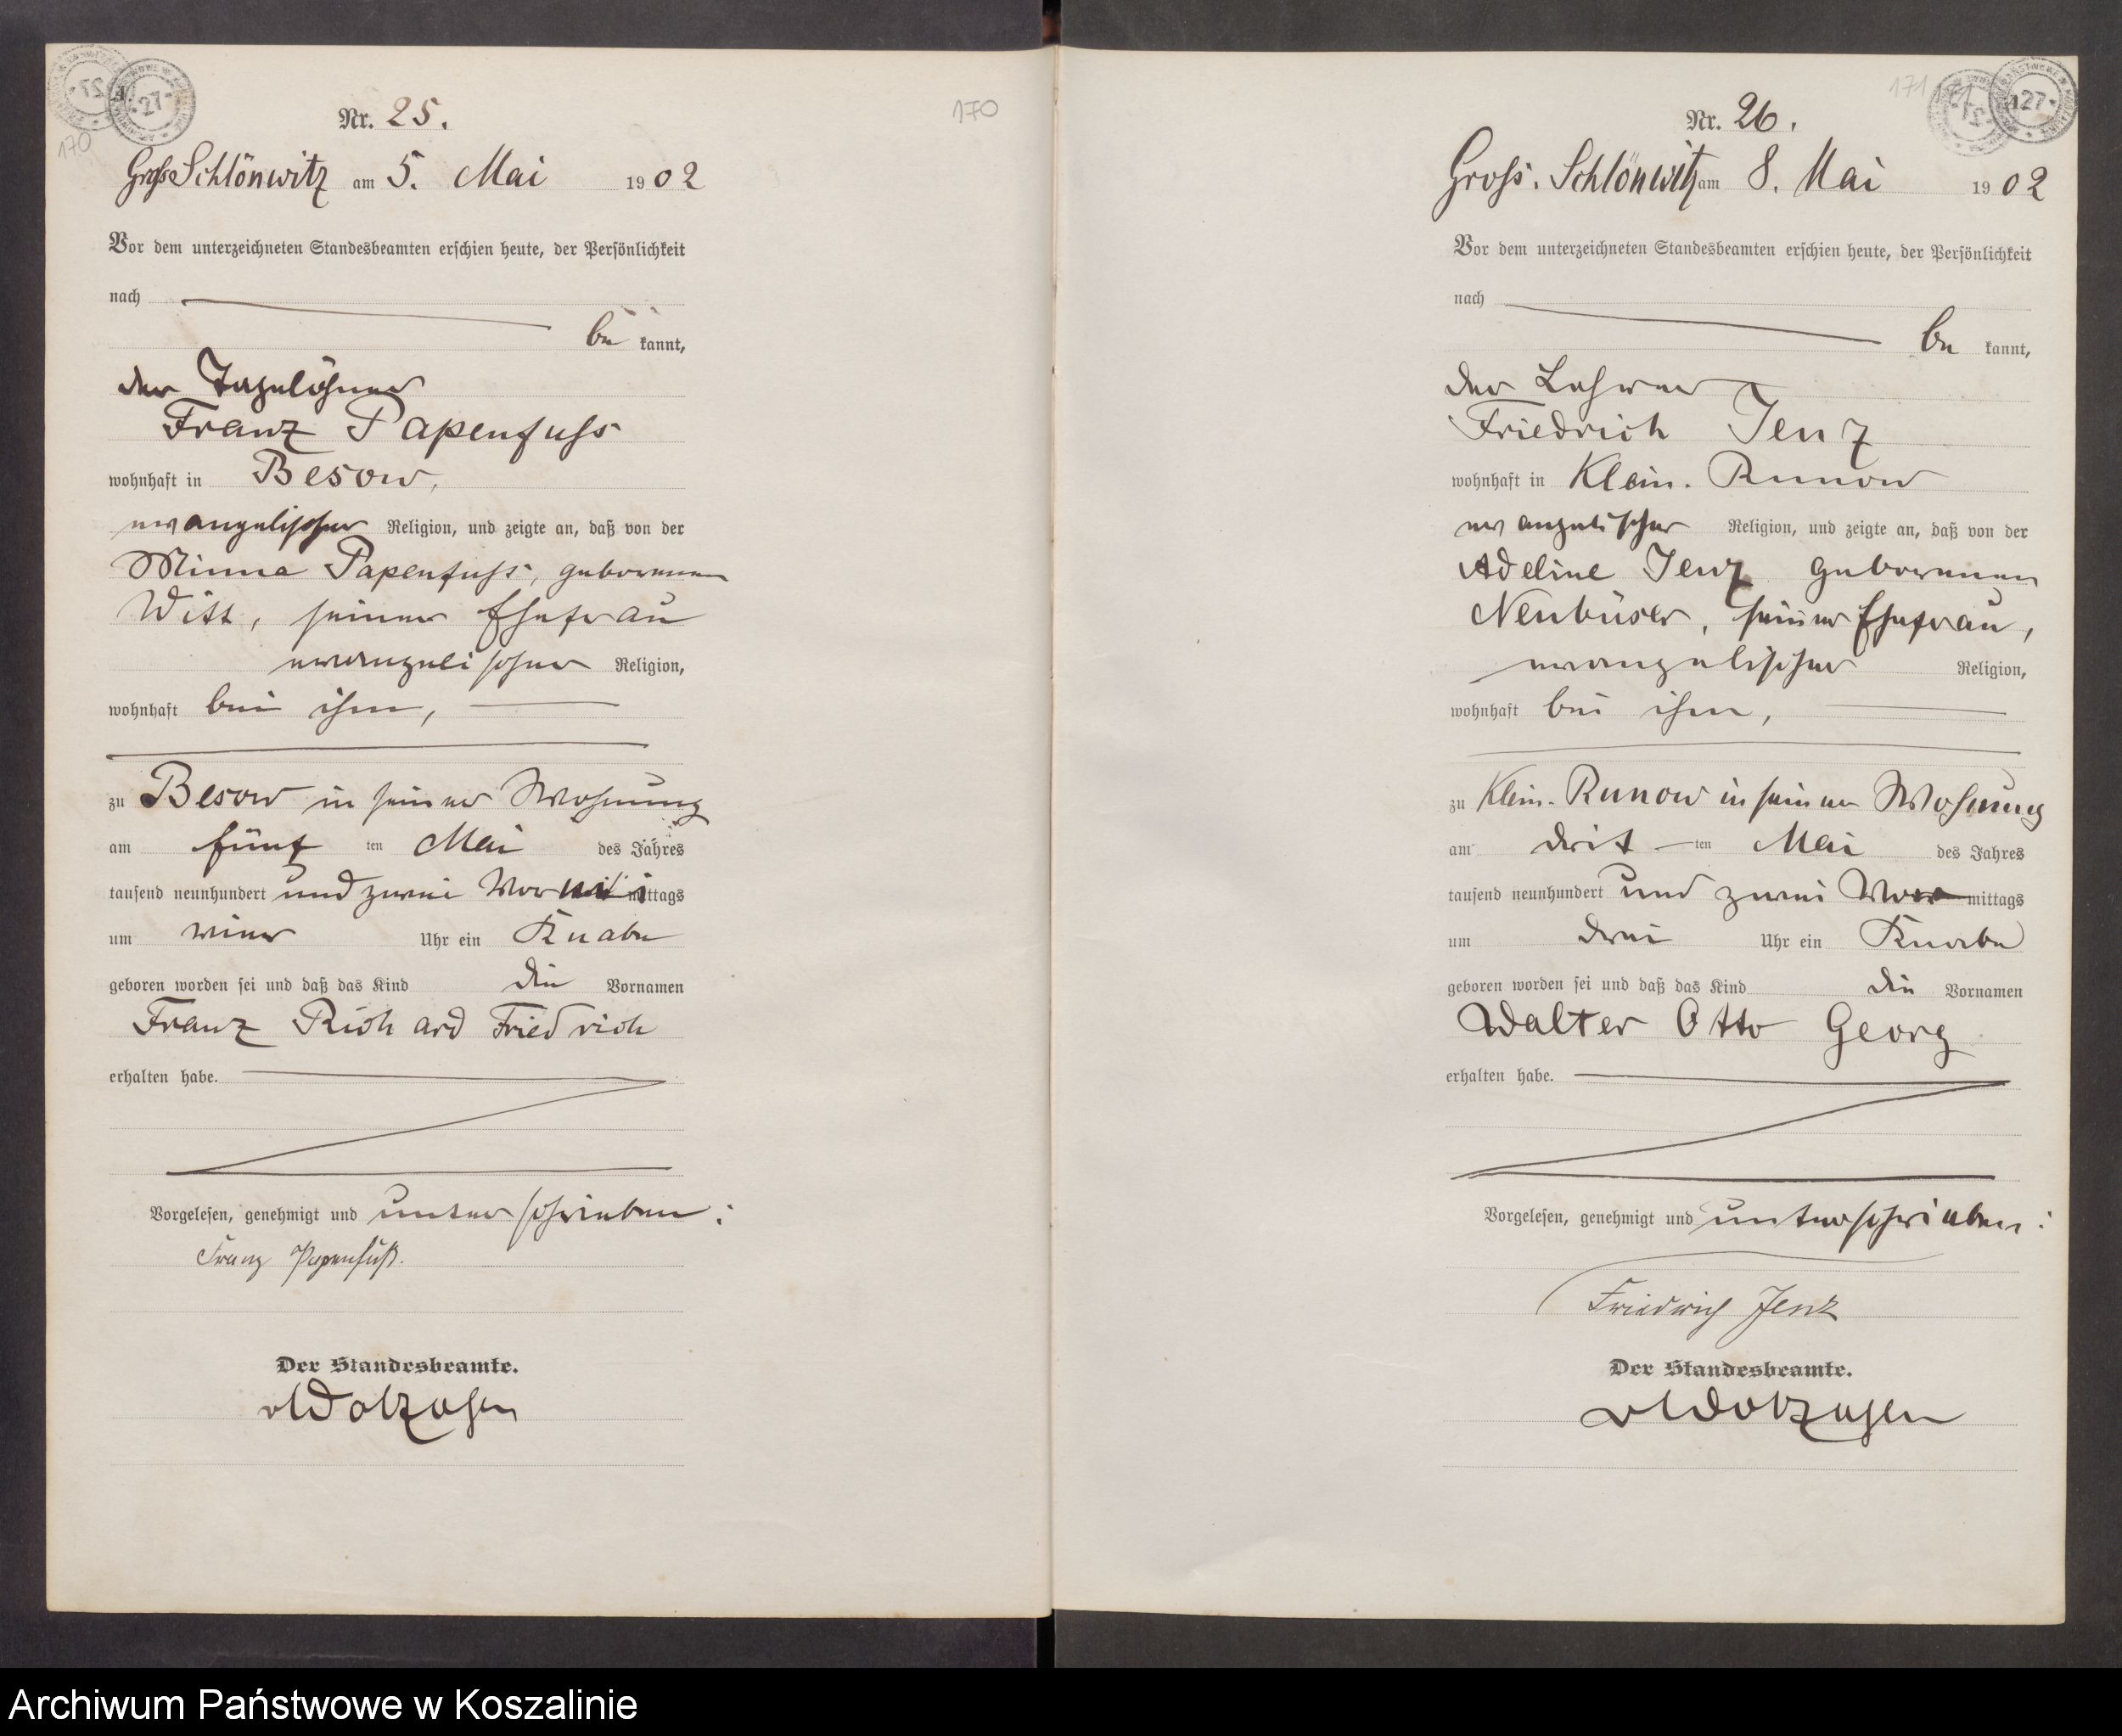 170
Nr. 25.
Gross Schlönwitz am 5. Mai 1902
Vor dem unterzeichneten Standesbeamten erschien heute, der Persönlichkeit
nach
be kannt,
der Tagelöhner
Franz Papenfuss
wohnhaft in Besow,
evangelischer Religion, und zeigte an, daß von der
Minna Papenfuss, geborenen
Witt, seiner Ehefrau
evangelischer Religion,
wohnhaft bei ihm,
zu Besow in seiner Wohnung
am fünf ten Mai des Jahres
tausend neunhundert und zwei Vor mittags
um Uhr ein Knabe
geboren worden sei und daß das Kind die Vornamen
Franz Richard Friedrich
erhalten habe.
Vorgelesen, genehmigt und unterschrieben:
Franz Papenfuß.
Der Standesbeamte.
170
171
Nr. 26.
Gross. Schlönwitz am 8. Mai 1902
Vor dem unterzeichneten Standesbeamten erschien heute, der Persönlichkeit
nach
be kannt,
der Lehrer
Friedrich Jenz
wohnhaft in Klein. Runow
evangelischer Religion, und zeigte an, daß von der
Adeline Jenz geborenen
Neubüser, seiner Ehefrau,
evangelischer Religion,
wohnhaft bei ihm,
zu Klein. Runow in seiner Wohnung
am drit ten Mai des Jahres
tausend neunhundert und zwei Vor mittags
um drei Uhr ein Knabe
geboren worden sei und daß das Kind die Vornamen
Walter Otto Georg
erhalten habe.
Vorgelesen, genehmigt und unterschrieben:
Friedrich Jenz
Der Standesbeamte.
Archiwum Państwowe w Koszalinie